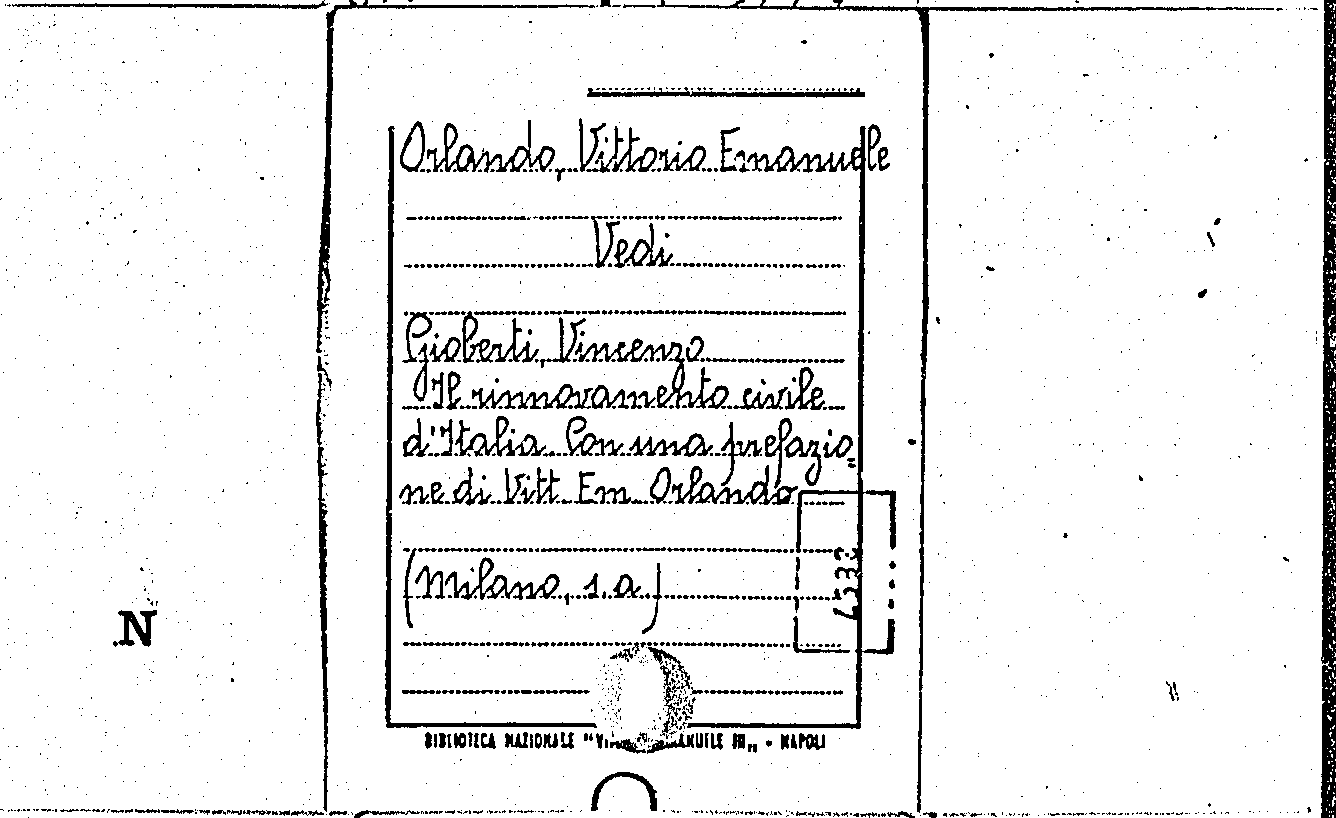 Orlando, Vittorio Emanuele
Vedi
Gioberti, Vincenzo
Il rinnovamento civile
d'Italia. Con una prefazio
ne di Vitt. Em. Orlando
(Milano, s.a.)
N
BIBLIOTECA NAZIONALE " EMANUELE III„ - NAPOLI